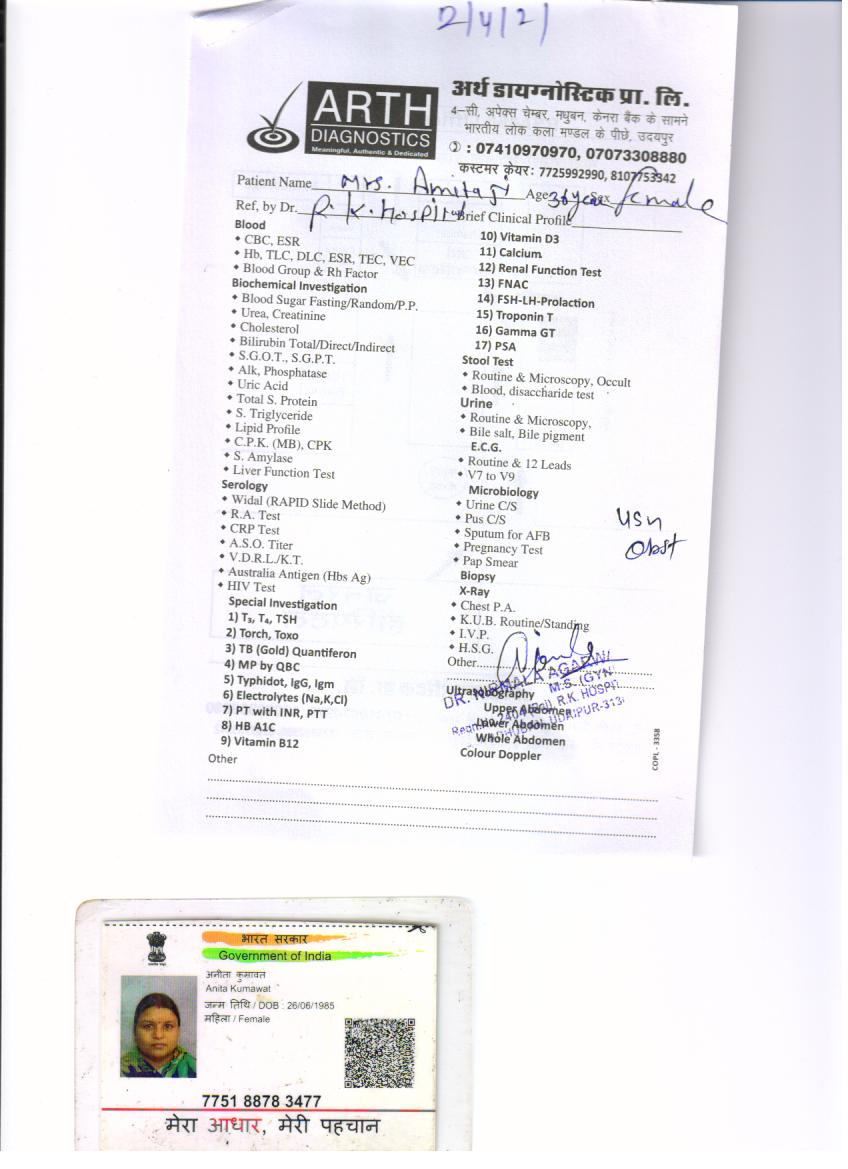 2/4/21
ARTH
DIAGNOSTICS
Meaningful, Authentic & Dedicated
अर्थ डायग्नोस्टिक प्रा. लि.
4-सी, अपेक्स चेम्बर, मधुबन, केनरा बैंक के सामने
भारतीय लोक कला मण्डल के पीछे, उदयपुर
: 07410970970, 07073308880
कस्टमर केयर: 7725992990, 8107753342
Patient Name Mrs. Anita Age 36 year Sex female
Ref, by Dr. R. K. Hospital Brief Clinical Profile
Blood
CBC, ESR
Hb, TLC, DLC, ESR, TEC, VEC
Blood Group & Rh Factor
Biochemical Investigation
Blood Sugar Fasting/Random/P.P.
Urea, Creatinine
Cholesterol
Bilirubin Total/Direct/Indirect
S.G.O.T., S.G.P.T.
Alk, Phosphatase
Uric Acid
Total S. Protein
S. Triglyceride
Lipid Profile
C.P.K. (MB), CPK
S. Amylase
Liver Function Test
Serology
Widal (RAPID Slide Method)
R.A. Test
CRP Test
A.S.O. Titer
V.D.R.L./K.T.
Australia Antigen (Hbs Ag)
HIV Test
Special Investigation
1) T₃, T₄, TSH
2) Torch, Toxo
3) TB (Gold) Quantiferon
4) MP by QBC
5) Typhidot, IgG, Igm
6) Electrolytes (Na,K,Cl)
7) PT with INR, PTT
8) HB A1C
9) Vitamin B12
Other
10) Vitamin D3
11) Calcium
12) Renal Function Test
13) FNAC
14) FSH-LH-Prolaction
15) Troponin T
16) Gamma GT
17) PSA
Stool Test
Routine & Microscopy, Occult
Blood, disaccharide test
Urine
Routine & Microscopy,
Bile salt, Bile pigment
E.C.G.
Routine & 12 Leads
V7 to V9
Microbiology
Urine C/S
Pus C/S
Sputum for AFB
Pregnancy Test
Pap Smear
Biopsy
X-Ray
Chest P.A.
K.U.B. Routine/Standing
I.V.P.
H.S.G.
Other
USG
Obst
DR. NIRMALA AGARWAL
M.S. (GYN
R.K. HOSPI
UDAIPUR-313
Ultrasonography
Upper Abdomen
Lower Abdomen
Whole Abdomen
Colour Doppler
COPL - 3358
भारत सरकार
Government of India
अनीता कुमावत
Anita Kumawat
जन्म तिथि / DOB : 26/06/1985
महिला / Female
7751 8878 3477
मेरा आधार, मेरी पहचान